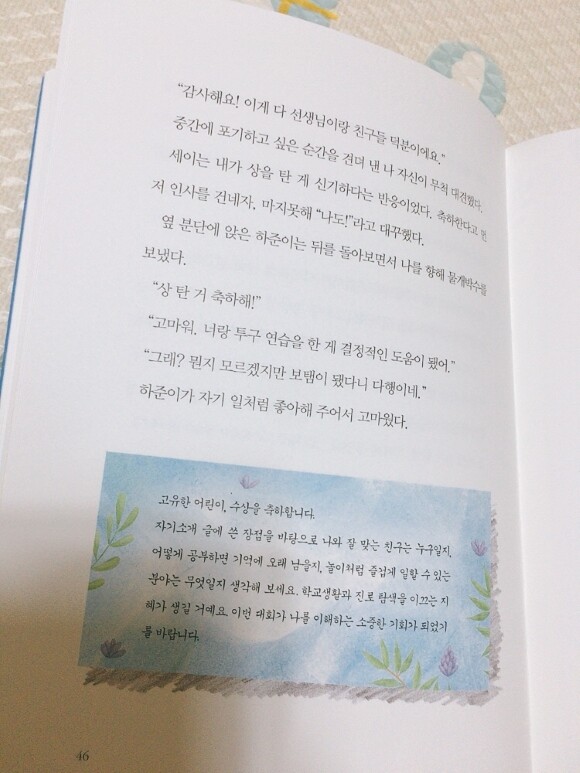 “감사해요! 이게 다 선생님이랑 친구들 덕분이에요.”
중간에 포기하고 싶은 순간을 견뎌 낸 나 자신이 무척 대견했다.
세이는 내가 상을 탄 게 신기하다는 반응이었다. 축하한다고 먼
저 인사를 건네자, 마지못해 “나도!”라고 대꾸했다.
옆 분단에 앉은 하준이는 뒤를 돌아보면서 나를 향해 물개박수를
보냈다.
“상 탄 거 축하해!”
“고마워. 너랑 투구 연습을 한 게 결정적인 도움이 됐어.”
“그래? 뭔지 모르겠지만 보탬이 됐다니 다행이네.”
하준이가 자기 일처럼 좋아해 주어서 고마웠다.
고유한 어린이, 수상을 축하합니다.
자기소개 글에 쓴 장점을 바탕으로 나와 잘 맞는 친구는 누구일지,
어떻게 공부하면 기억에 오래 남을지, 놀이처럼 즐겁게 일할 수 있는
분야는 무엇일지 생각해 보세요. 학교생활과 진로 탐색을 이끄는 지
혜가 생길 거예요. 이번 대회가 나를 이해하는 소중한 기회가 되었기
를 바랍니다.
46